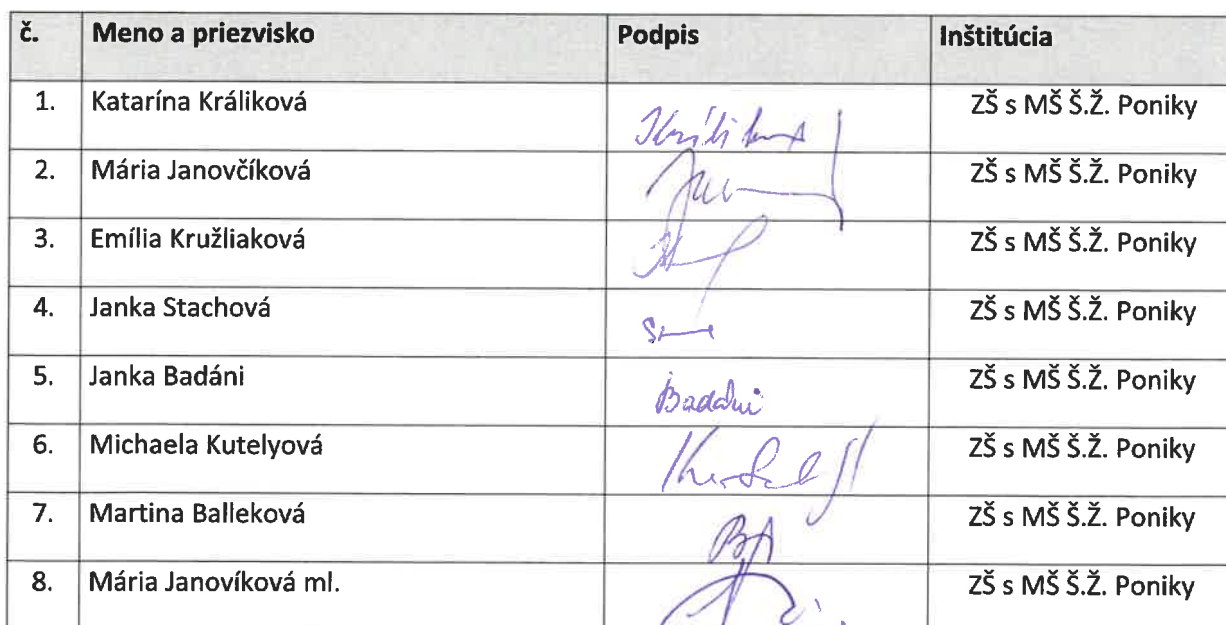 č. Meno a priezvisko Podpis Inštitúcia
1. Katarína Králiková ZŠ s MŠ Š.Ž. Poniky
2. Mária Janovčíková ZŠ s MŠ Š.Ž. Poniky
3. Emília Kružliaková ZŠ s MŠ Š.Ž. Poniky
4. Janka Stachová ZŠ s MŠ Š.Ž. Poniky
5. Janka Badáni Badáni ZŠ s MŠ Š.Ž. Poniky
6. Michaela Kutelyová ZŠ s MŠ Š.Ž. Poniky
7. Martina Balleková ZŠ s MŠ Š.Ž. Poniky
8. Mária Janovíková ml. ZŠ s MŠ Š.Ž. Poniky